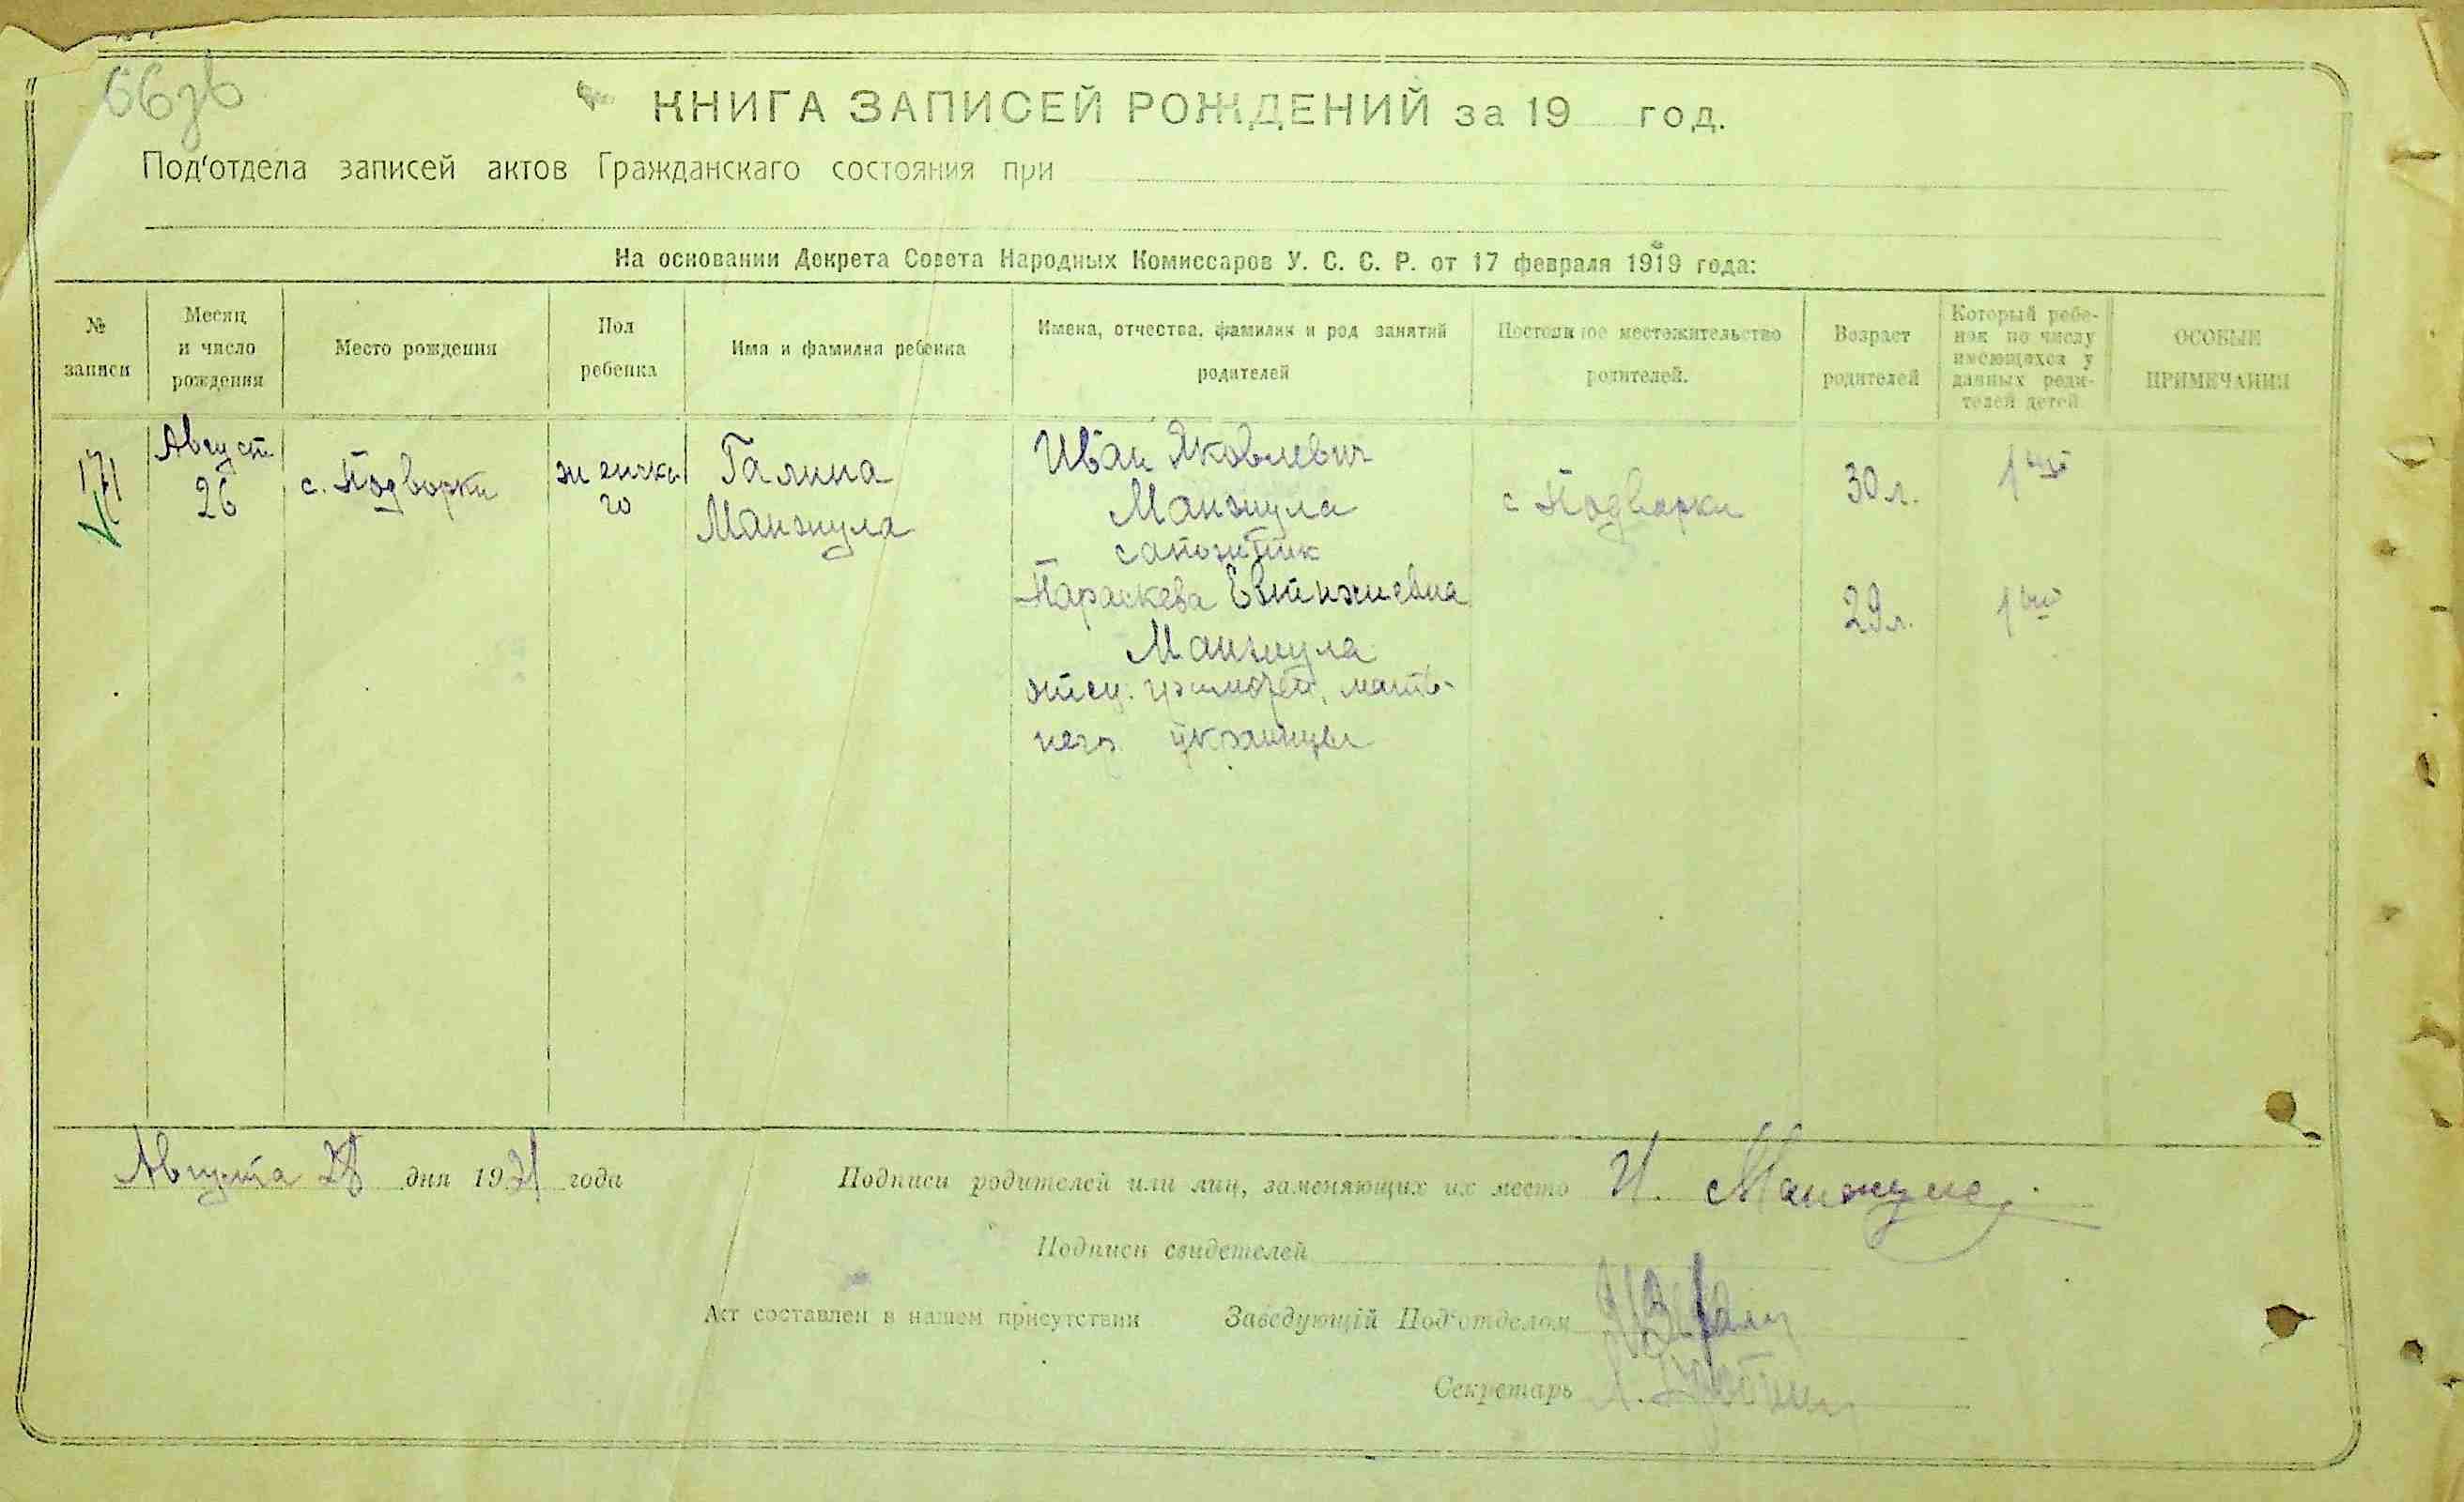 КНИГА ЗАПИСЕЙ РОЖДЕНИЙ за 19 год.
Под'отдела записей актов Гражданскаго состояния при
На основании Декрета Совета Народных Комиссаров У. С. С. Р. от 17 февраля 1919 года:
№ записи
Месяц и число рождения
Место рождения
Пол ребенка
Имя и фамилия ребенка
Имена, отчества, фамилия и род занятий родителей
Постоянное местожительство родителей.
Возраст родителей
Который ребенок по числу имеющихся у данных родителей детей
ОСОБЫЕ ПРИМЕЧАНИЯ
171
Август
26
с. Подворки
женска
го
Галина
Манжула
Иван Яковлевич
Манжула
сапожник
Параскева
Манжула
отец мать
украинцы
с Подворки
30 л.
29 л.
1ый
1ый
Августа 28 дня 1921 года
Подписи родителей или лиц, заменяющих их место И. Манжула.
Подписи свидетелей
Акт составлен в нашем присутствии Заведующій Под'отделом
Секретарь